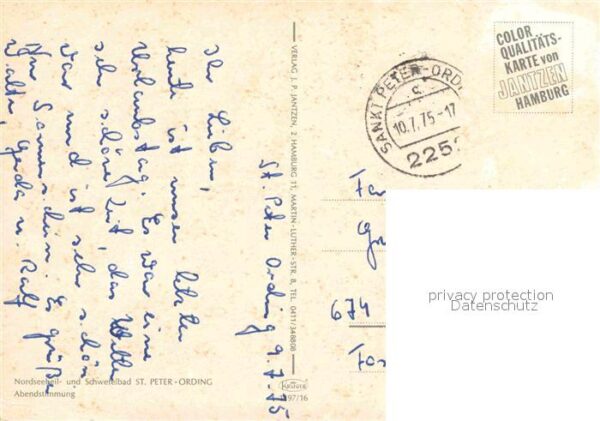 St. Peter Ording 9.7.75
Ihr Lieben,
heute ist unser letzter
Urlaubstag. Es war eine
sehr schöne Zeit, das Wetter
war und ist sehr schön
Nur Sonnenschein. Es grüßen
Walter, Gerda u. Ralf
Nordseeheil- und Schwefelbad ST. PETER-ORDING
Abendstimmung
VERLAG J. P. JANTZEN, 2 HAMBURG 11, MARTIN-LUTHER-STR. 8, TEL. 0411/348808
KRÜGER
97/16
SANKT PETER-ORDI
c
10.7.75-17
2252
COLOR
QUALITÄTS-
KARTE von
JANTZEN
HAMBURG
Fa
674
privacy protection
Datenschutz